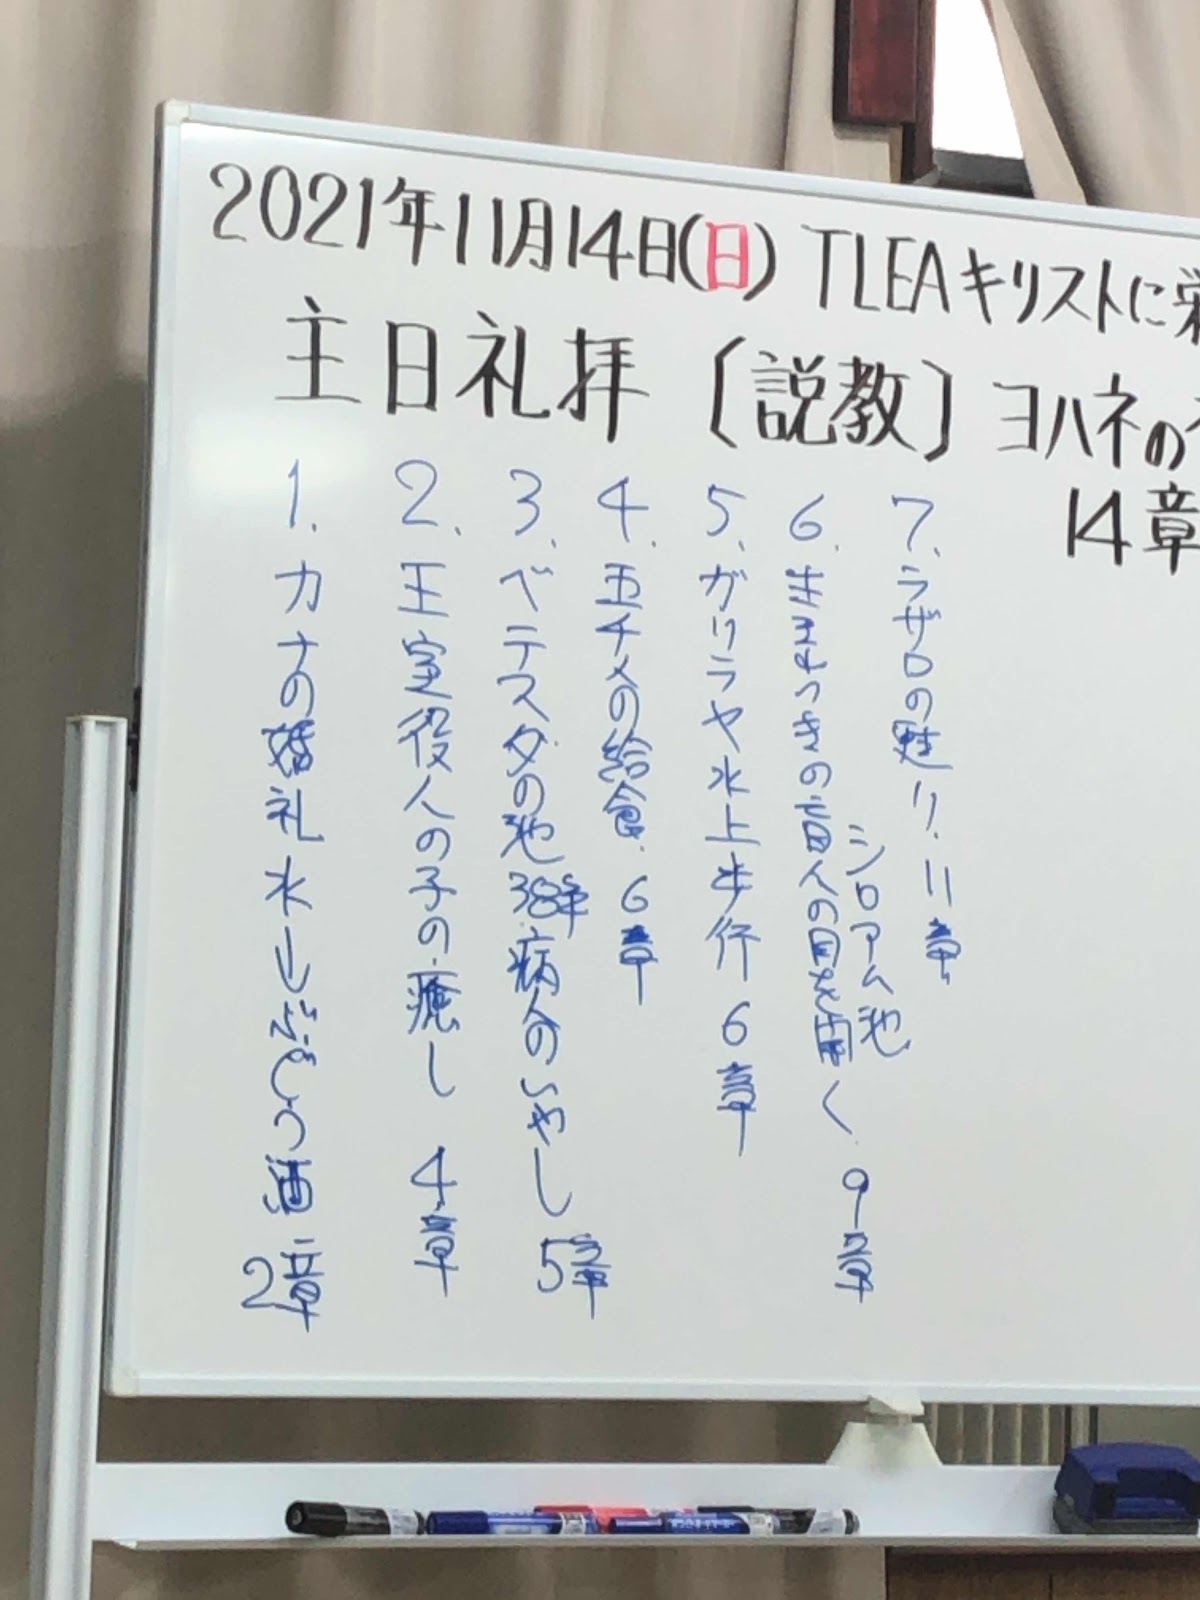 2021年11月14日(日) TLEAキリストに栄
主日礼拝〔説教〕ヨハネの
14章
1. カナの婚礼水→ぶどう酒 2章
2. 王室役人の子の癒し 4章
3. ベテスダの池38年病人のいやし 5章
4. 五千人の給食 6章
5. ガリラヤ水上歩行 6章
6. 生まれつきの盲人の目を開く 9章
シロアム池
7. ラザロの甦り 11章